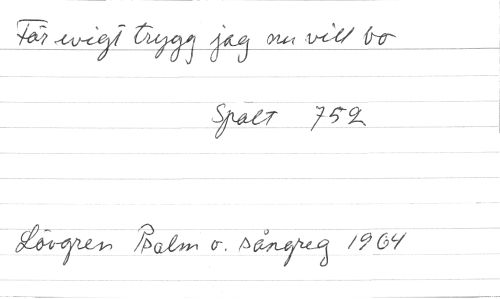 För evigt trygg jag nu vill bo
Spalt 752
Lövgren Psalm o. sångreg 1964